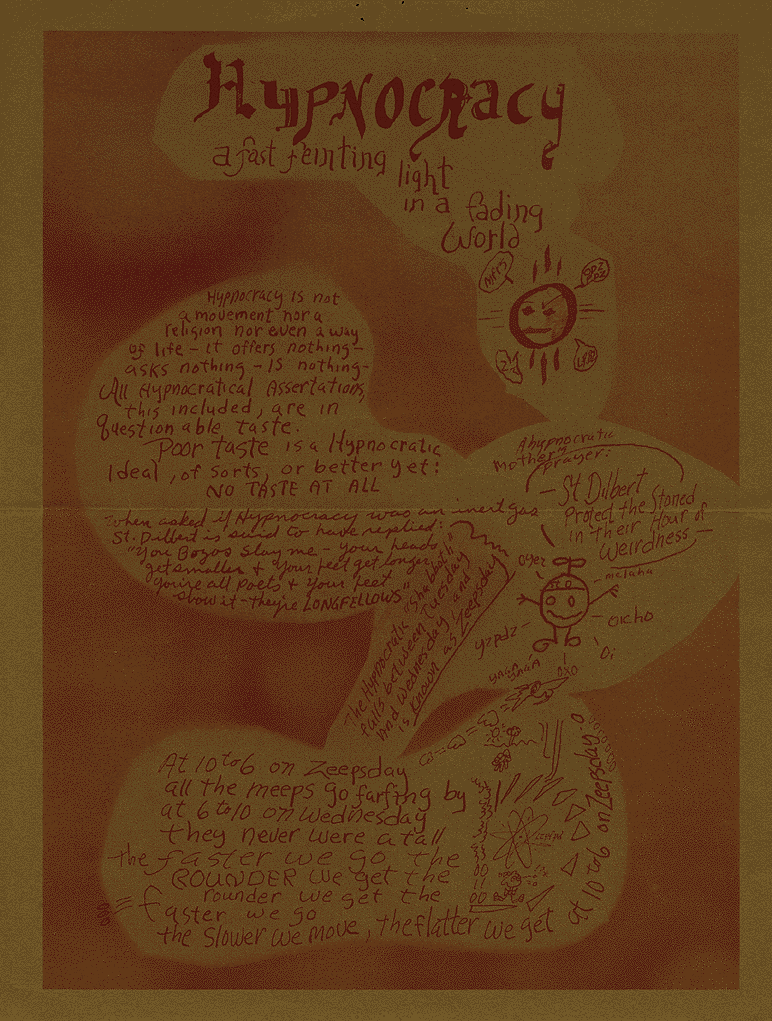 Hypnocracy
a fast feinting light
in a fading
World
Hypnocracy is not
a movement nor a
religion nor even a way
of life – it offers nothing –
asks nothing – IS nothing –
All Hypnocratical Assertations,
this included, are in
question able taste.
Poor taste is a Hypnocratic
Ideal, of sorts, or better yet:
NO TASTE AT ALL
When asked if Hypnocracy was an inert gas
St. Dilbert is said to have replied:
"You Bozos slay me – your heads
get smaller & your feet get longer
You're all poets & your feet
show it – they're LONGFELLOWS"
A hypnocratic
mother's prayer:
– St Dilbert
Protect the Stoned
in their Hour of
Weirdness –
oyez
melaha
oicho
yzpdz
Oi
yaga yaga
oxo
The Hypnocratic "shabboth"
falls between Tuesday
and Wednesday and
is known as Zeepsday
At 10 to 6 on Zeepsday
all the meeps go farfing by
at 6 to 10 on Wednesday
they never were a tall
the faster we go the
ROUNDER we get the
rounder we get the
faster we go
the slower we move, the flatter we get
at 10 to 6 on Zeepsday